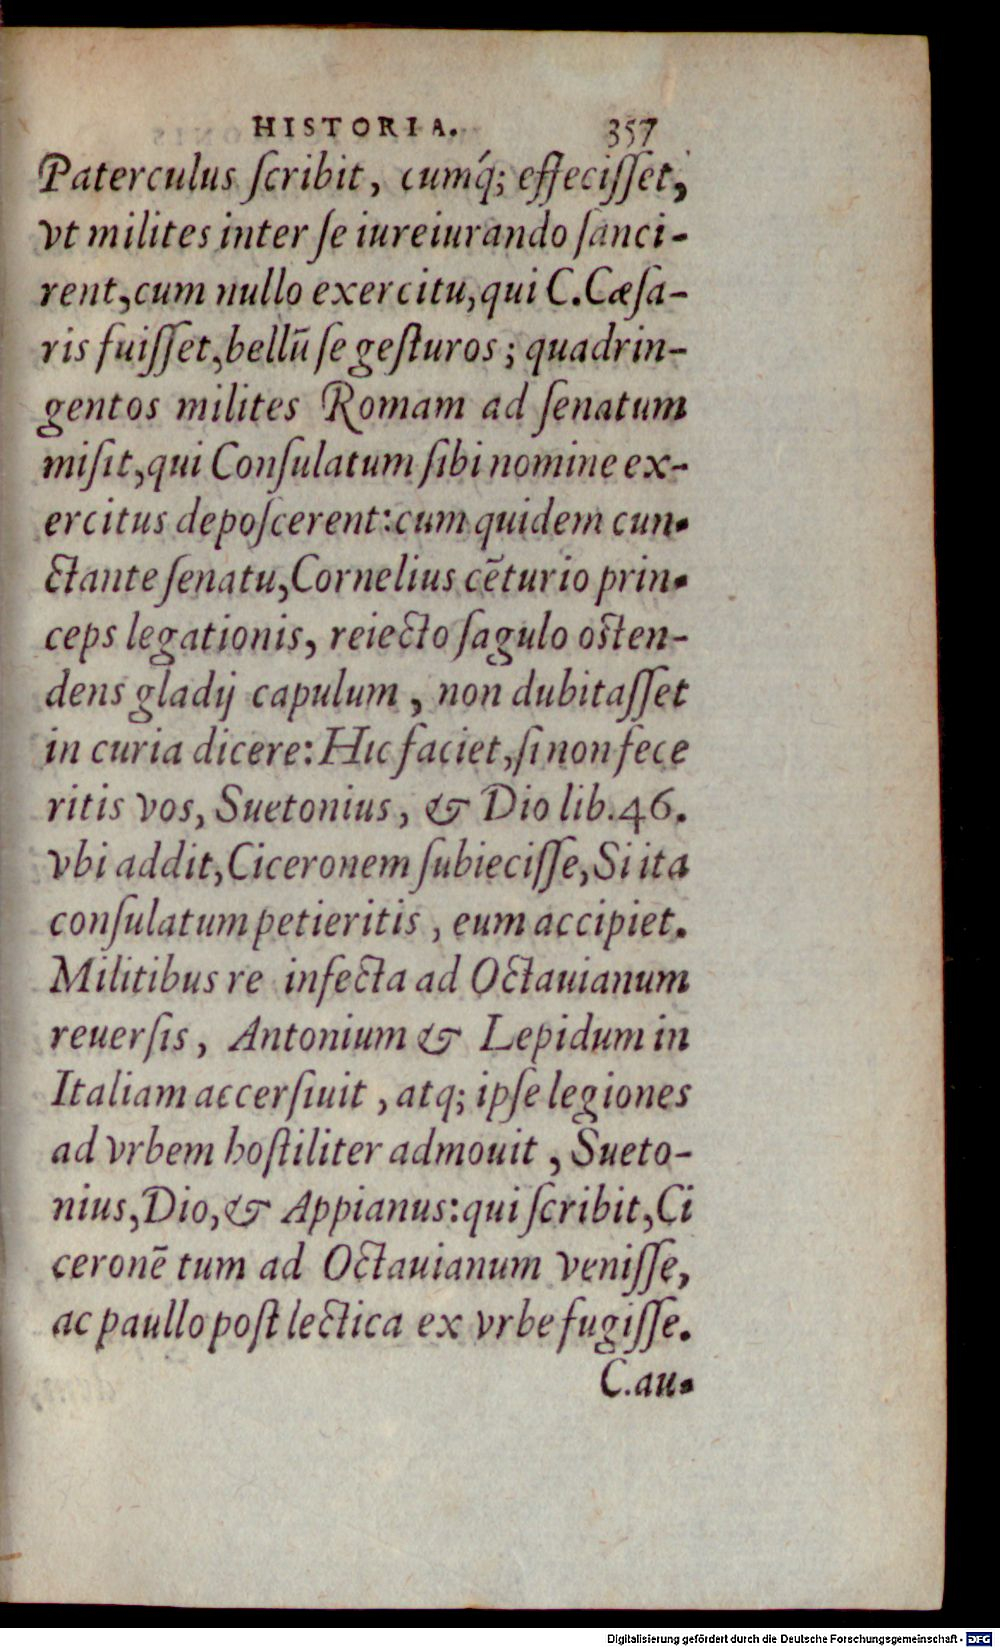 HISTORIA. 357
Paterculus ſcribit, cumq́; effeciſſet,
vt milites inter ſe iureiurando ſanci-
rent,cum nullo exercitu,qui C.Cæſa-
ris fuiſſet,bellū ſe geſturos; quadrin-
gentos milites Romam ad ſenatum
miſit,qui Conſulatum ſibi nomine ex-
ercitus depoſcerent:cum quidem cun-
ctante ſenatu,Cornelius cēturio prin-
ceps legationis, reiecto ſagulo oſten-
dens gladij capulum, non dubitaſſet
in curia dicere: Hic faciet,ſi non fece
ritis vos, Suetonius, & Dio lib.46.
vbi addit,Ciceronem ſubieciſſe,Si ita
conſulatum petieritis, eum accipiet.
Militibus re infecta ad Octauianum
reuerſis, Antonium & Lepidum in
Italiam accerſiuit, atq; ipſe legiones
ad vrbem hoſtiliter admouit, Sueto-
nius,Dio,& Appianus:qui ſcribit,Ci
ceronē tum ad Octauianum veniſſe,
ac paullo poſt lectica ex vrbe fugiſſe.
C.au-
Digitalisierung gefördert durch die Deutsche Forschungsgemeinschaft - DFG